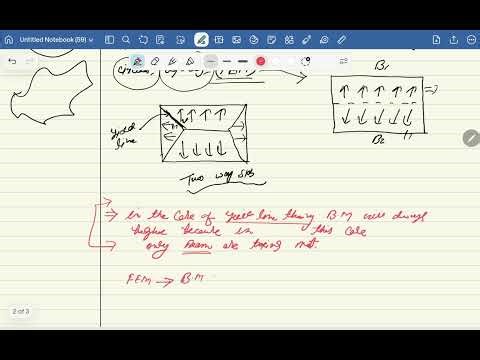 Untitled Notebook (59)
B1
yield
line
B2
Two way slab
In the Case of yield line theory BM will always
higher because in this case
only Beam are taking
FEM → BM
2 of 3